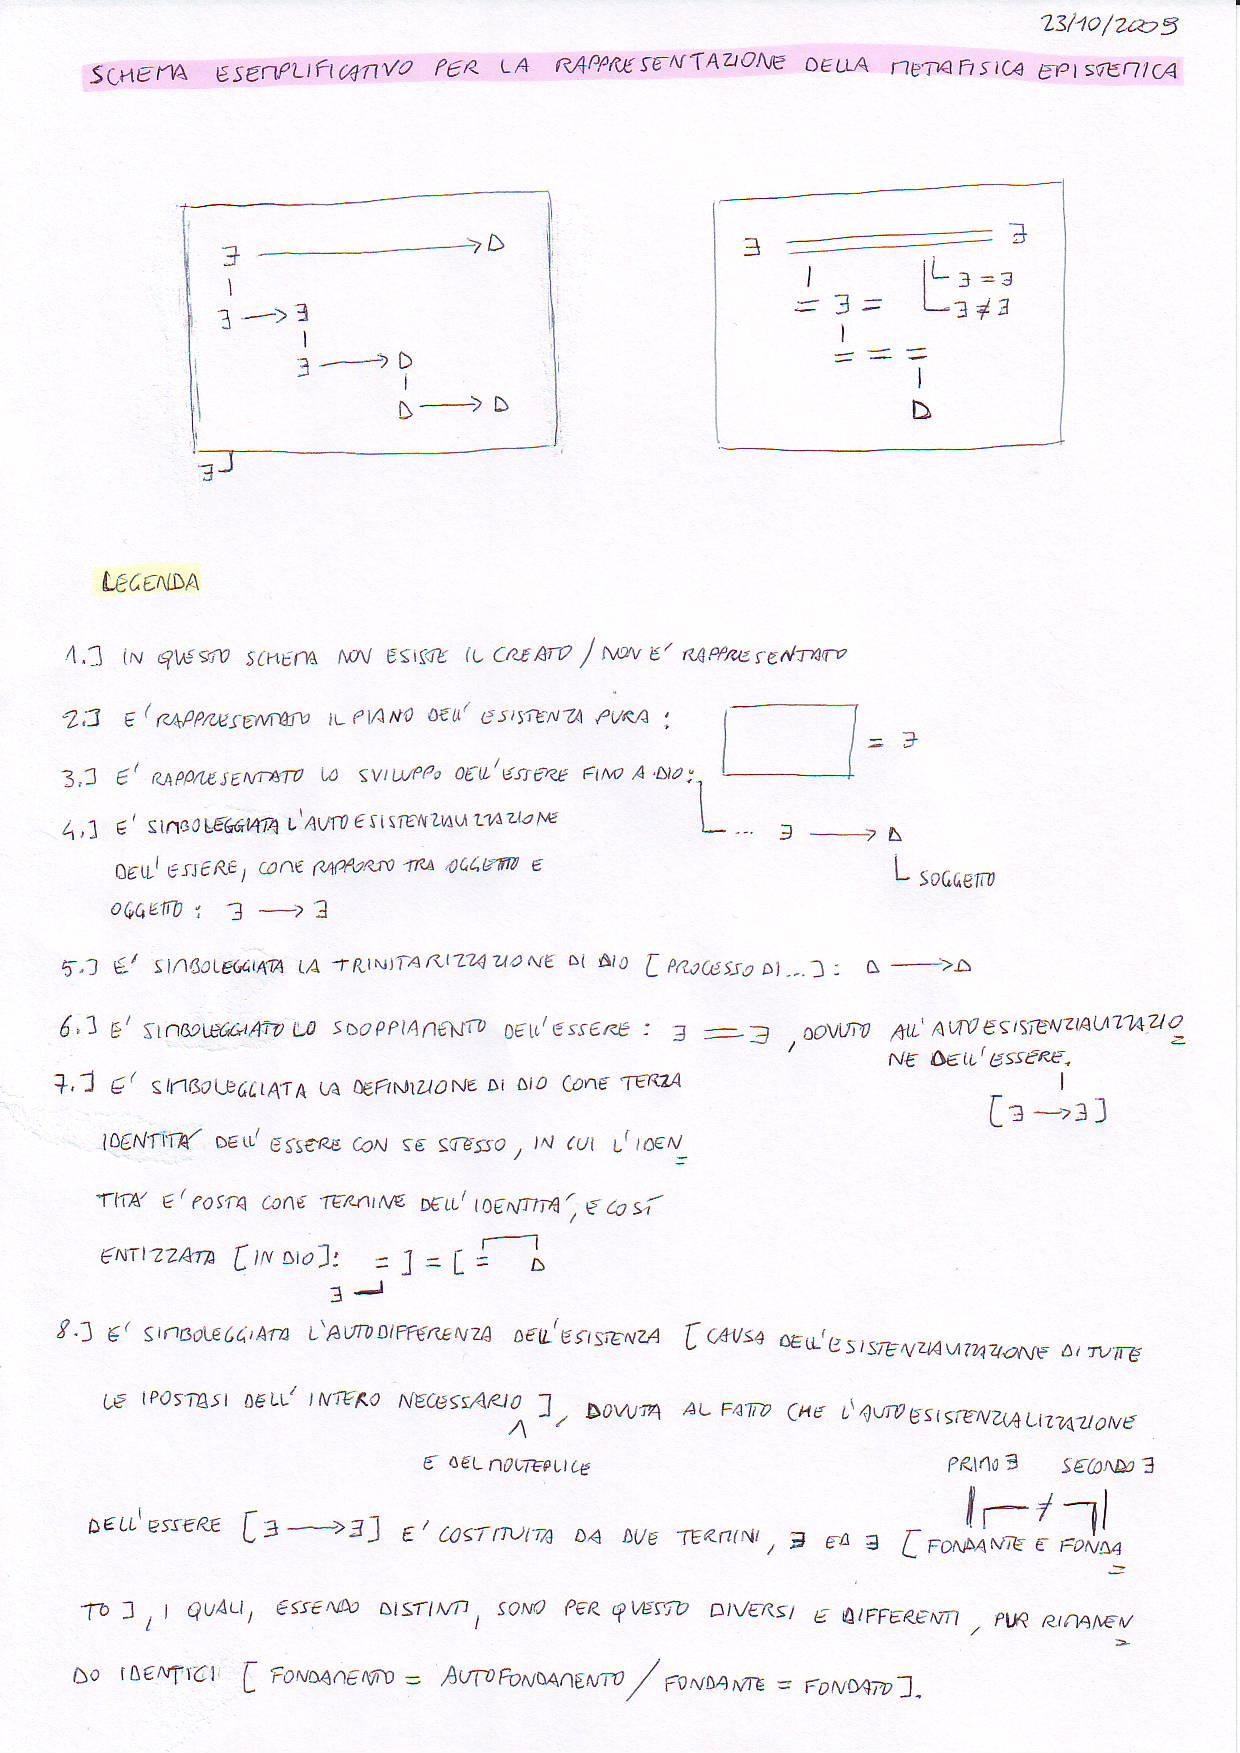 23/10/2009
SCHEMA ESEMPLIFICATIVO PER LA RAPPRESENTAZIONE DELLA METAFISICA EPISTEMICA
∃ → D
∃ → ∃
∃ → D
D → D
∃
∃ = ∃
∃ = ∃
= ∃ = ∃ ≠ ∃
= = =
D
LEGENDA
1.] IN QUESTO SCHEMA NON ESISTE IL CREATO / NON E' RAPPRESENTATO
2.] E' RAPPRESENTATO IL PIANO DELL'ESISTENZA PURA : = ∃
3.] E' RAPPRESENTATO LO SVILUPPO DELL'ESSERE FINO A DIO :
... ∃ → D
SOGGETTO
4.] E' SIMBOLEGGIATA L'AUTOESISTENZIALIZZAZIONE
DELL'ESSERE, COME RAPPORTO TRA OGGETTO E
OGGETTO : ∃ → ∃
5.] E' SIMBOLEGGIATA LA TRINITARIZZAZIONE DI DIO [ PROCESSO DI ... ] : D → D
6.] E' SIMBOLEGGIATO LO SDOPPIAMENTO DELL'ESSERE : ∃ = ∃ , DOVUTO ALL'AUTOESISTENZIALIZZAZIO=
NE DELL'ESSERE.
[ ∃ → ∃ ]
7.] E' SIMBOLEGGIATA LA DEFINIZIONE DI DIO COME TERZA
IDENTITA' DELL'ESSERE CON SE STESSO, IN CUI L'IDEN=
TITA' E' POSTA COME TERMINE DELL'IDENTITA', E COSÍ
ENTIZZATA [ IN DIO ] : = ] = [ = D
∃
8.] E' SIMBOLEGGIATA L'AUTODIFFERENZA DELL'ESISTENZA [ CAUSA DELL'ESISTENZIALIZZAZIONE DI TUTTE
LE IPOSTASI DELL'INTERO NECESSARIO ], DOVUTA AL FATTO CHE L'AUTOESISTENZIALIZZAZIONE
E DEL MOLTEPLICE
PRIMO ∃ SECONDO ∃
≠
DELL'ESSERE [ ∃ → ∃ ] E' COSTITUITA DA DUE TERMINI, ∃ ED ∃ [ FONDANTE E FONDA=
TO ], I QUALI, ESSENDO DISTINTI, SONO PER QUESTO DIVERSI E DIFFERENTI, PUR RIMANEN=
DO IDENTICI [ FONDAMENTO = AUTOFONDAMENTO / FONDANTE = FONDATO ].